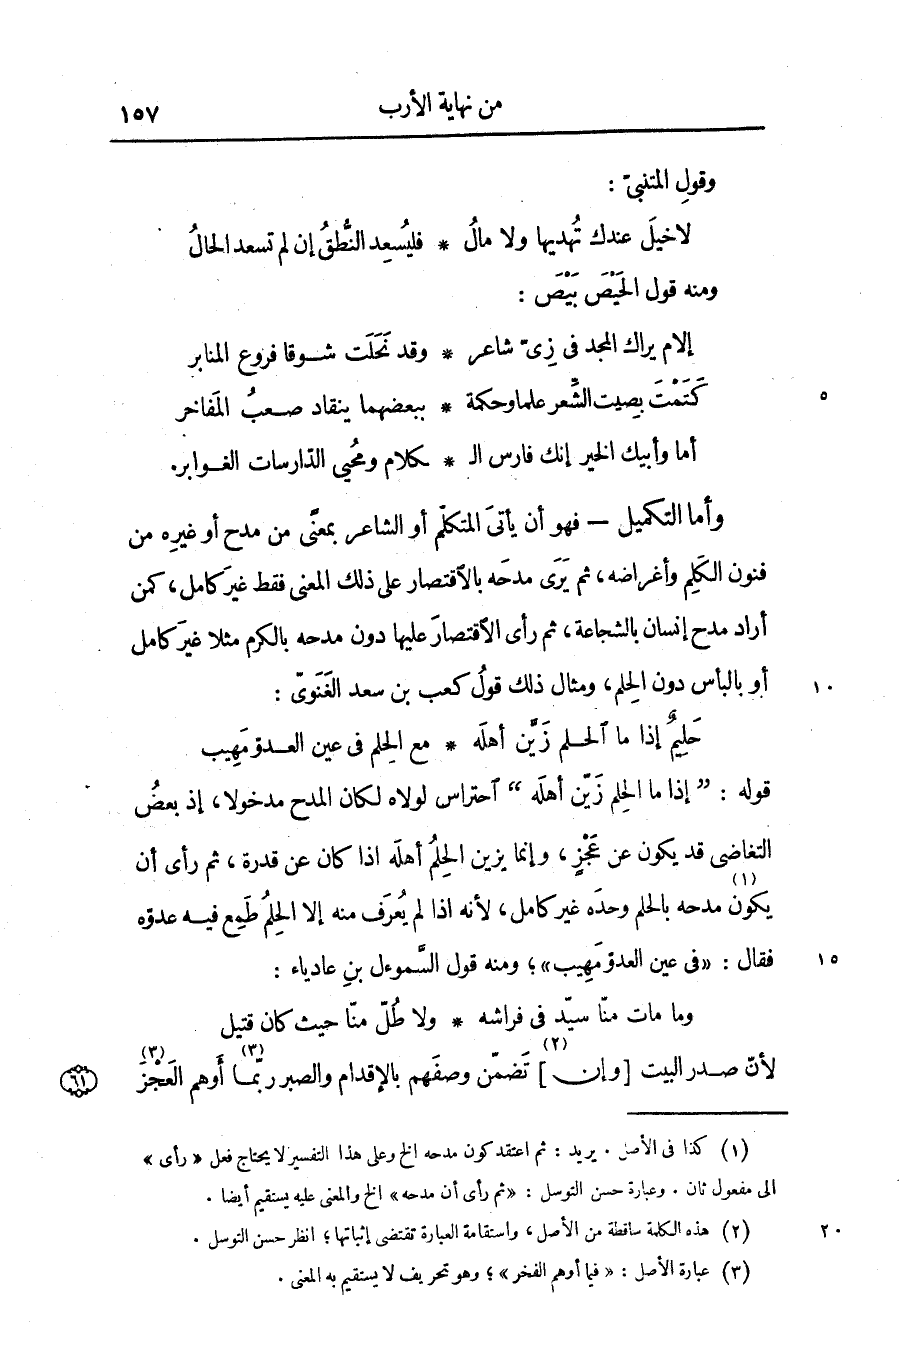 من نهاية الأرب ١٥٧
وقولِ المتنبيّ :
لاخيلَ عندك تُهديها ولا مالُ * فليُسعِد النُّطقُ إن لم تسعد الحالُ
ومنه قول الحَيْصَ بَيْصَ :
إلام يراك المجد فى زِىّ شاعر * وقد نَحَلَت شوقا فروع المنابر
٥ كَتَمْتَ بِصيت الشِّعر علما وحكمة * ببعضهما ينقاد صعبُ المَفاخر
أما وأبيك الخير إنك فارس الـ * كلام ومُحيى الدّارسات الغوابر.
وأما التكميل — فهو أن يأتىَ المتكلّم أو الشاعر بمعنًى من مدح أو غيرِه من
فنون الكَلِم وأغراضه، ثم يَرَى مدحَه بالاقتصار على ذلك المعنى فقط غيرَ كامل، كمن
أراد مدح إنسان بالشجاعة، ثم رأى الاقتصارَ عليها دون مدحه بالكرم مثلا غيرَ كامل
١٠ أو بالبأس دون الحِلم، ومثال ذلك قولُ كعب بن سعد الغَنَوىّ :
حَلِيمٌ إذا ما الحلم زَيَّن أهلَه * مع الحِلم فى عين العدوّ مَهِيب
قوله : ” إذا ما الحِلم زَيّن أهلَه “ احتراس لولاه لكان المدح مدخولا، إذ بعضُ
التغاضى قد يكون عن عَجْزٍ، وإنما يزين الحِلُم أهلَه اذا كان عن قدرة، ثم رأى أن
يكون (١) مدحه بالحلم وحدَه غير كامل، لأنه اذا لم يُعرَف منه إلا الحِلمُ طَمِع فيه عدوّه
١٥ فقال : «فى عين العدوّ مَهِيب»؛ ومنه قول السَّموءل بنِ عادياء :
وما مات منّا سيّد فى فراشه * ولا طُلّ منّا حيث كان قتيل
لأنّ صدر البيت [وإن] (٢) تَضمّن وصفَهم بالإقدام والصبر ربّما (٣) أَوهم العَجْزَ (٣) ٦١
(١) كذا فى الأصل . يريد : ثم اعتقد كون مدحه الخ وعلى هذا التفسير لا يحتاج فعل « رأى »
الى مفعول ثان . وعبارة حسن التوسل : «ثم رأى أن مدحه» الخ والمعنى عليه يستقيم أيضا .
٢٠ (٢) هذه الكلمة ساقطة من الأصل، واستقامة العبارة تقتضى إثباتها؛ انظر حسن التوسل .
(٣) عبارة الأصل : « فيما أوهم الفخر »؛ وهو تحريف لا يستقيم به المعنى .